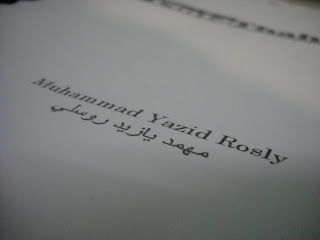 Muhammad Yazid Rosly
مهمد يازيد روسلي